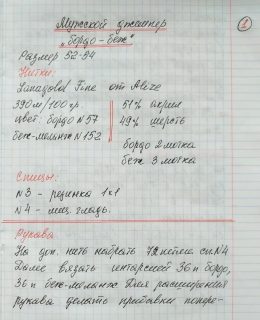 Мужской джемпер
1
„бордо – беж"
Размер 52-54
Нитки:
Lanagold Fine от Alize
390м/100гр. 51% акрил
цвет: бордо №57 49% шерсть
беж-меланж №152
бордо 2 мотка
беж 3 мотка
Спицы:
№3 – резинка 1х1
№4 – лиц. гладь.
Рукава
На дж. нить набрать 72 петли сп. №4
Далее вязать интарсией 36п бордо,
36п беж-меланж Для расширения
рукава делать прибавки попере-